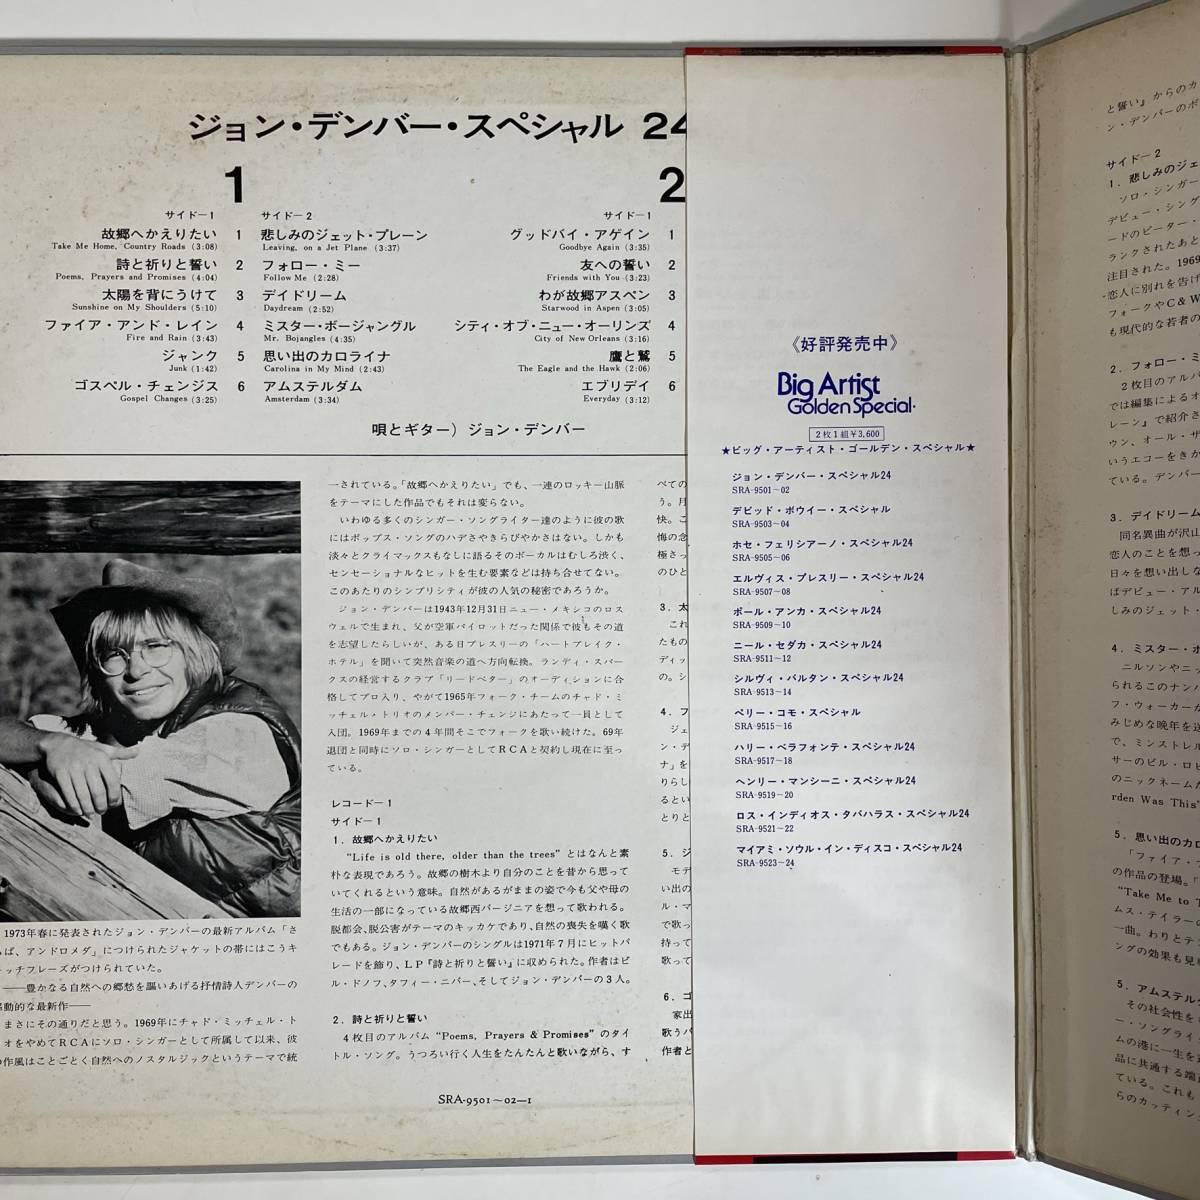 ジョン・デンバー・スペシャル 24
1
サイド－1
故郷へかえりたい 1
Take Me Home, Country Roads (3:08)
詩と祈りと誓い 2
Poems, Prayers and Promises (4:04)
太陽を背にうけて 3
Sunshine on My Shoulders (5:10)
ファイア・アンド・レイン 4
Fire and Rain (3:43)
ジャンク 5
Junk (1:42)
ゴスペル・チェンジス 6
Gospel Changes (3:25)
サイド－2
悲しみのジェット・プレーン
Leaving, on a Jet Plane (3:37)
フォロー・ミー
Follow Me (2:28)
デイドリーム
Daydream (2:52)
ミスター・ボージャングル
Mr. Bojangles (4:35)
思い出のカロライナ
Carolina in My Mind (2:43)
アムステルダム
Amsterdam (3:34)
2
サイド－1
グッドバイ・アゲイン 1
Goodbye Again (3:35)
友への誓い 2
Friends with You (3:23)
わが故郷アスペン 3
Starwood in Aspen (3:05)
シティ・オブ・ニュー・オーリンズ 4
City of New Orleans (3:16)
鷹と鷲 5
The Eagle and the Hawk (2:06)
エブリデイ 6
Everyday (3:12)
唄とギター）ジョン・デンバー
1973年春に発表されたジョン・デンバーの最新アルバム「さ
らば、アンドロメダ」につけられたジャケットの帯にはこうキ
ャッチフレーズがつけられていた。
――豊かなる自然への郷愁を謳いあげる抒情詩人デンバーの
感動的な最新作――
まさにその通りだと思う。1969年にチャド・ミッチェル・ト
リオをやめてＲＣＡにソロ・シンガーとして所属して以来、彼
の作風はことごとく自然へのノスタルジックというテーマで統
一されている。「故郷へかえりたい」でも、一連のロッキー山脈
をテーマにした作品でもそれは変らない。
いわゆる多くのシンガー・ソングライター達のように彼の歌
にはポップス・ソングのハデさやきらびやかさはない。しかも
淡々とクライマックスもなしに語るそのボーカルはむしろ渋く、
センセーショナルなヒットを生む要素などは持ち合せてない。
このあたりのシンプリシティが彼の人気の秘密であろうか。
ジョン・デンバーは1943年12月31日ニュー・メキシコのロス
ウェルで生まれ、父が空軍パイロットだった関係で彼もその道
を志望したらしいが、ある日プレスリーの「ハートブレイク・
ホテル」を聞いて突然音楽の道へ方向転換。ランディ・スパー
クスの経営するクラブ「リードベター」のオーディションに合
格してプロ入り、やがて1965年フォーク・チームのチャド・ミ
ッチェル・トリオのメンバー・チェンジにあたって一員として
入団。1969年までの４年間そこでフォークを歌い続けた。69年
退団と同時にソロ・シンガーとしてＲＣＡと契約し現在に至っ
ている。
レコード－1
サイド－1
1．故郷へかえりたい
“Life is old there, older than the trees” とはなんと素
朴な表現であろう。故郷の樹木より自分のことを昔から思って
いてくれるという意味。自然があるがままの姿で今も父や母の
生活の一部になっている故郷西バージニアを想って歌われる。
脱都会、脱公害がテーマのキッカケであり、自然の喪失を嘆く歌
でもある。ジョン・デンバーのシングルは1971年７月にヒットパ
レードを飾り、ＬＰ『詩と祈りと誓い』に収められた。作者はビ
ル・ドノフ、タフィー・ニバー、そしてジョン・デンバーの３人。
2．詩と祈りと誓い
４枚目のアルバム “Poems, Prayers & Promises” のタイ
トル・ソング。うつろい行く人生をたんたんと歌いながら、す
SRA-9501～02－1
べての
う。月
快。こ
悔の念
極さっ
のひと
3．太
これ
たもの
ディッ
の。シ
4．フ
ジェ
ン・デ
ナ」を
りらし
るとい
とりと
5．ジ
モデ
い出の
ル・マ
で歌っ
持って
歌って
6．ゴ
家出
歌うバ
作者と
《好評発売中》
Big Artist
Golden Special.
２枚１組￥3,600
★ビッグ・アーティスト・ゴールデン・スペシャル★
ジョン・デンバー・スペシャル24
SRA-9501～02
デビッド・ボウイー・スペシャル
SRA-9503～04
ホセ・フェリシアーノ・スペシャル24
SRA-9505～06
エルヴィス・プレスリー・スペシャル24
SRA-9507～08
ポール・アンカ・スペシャル24
SRA-9509～10
ニール・セダカ・スペシャル24
SRA-9511～12
シルヴィ・バルタン・スペシャル24
SRA-9513～14
ペリー・コモ・スペシャル
SRA-9515～16
ハリー・ベラフォンテ・スペシャル24
SRA-9517～18
ヘンリー・マンシーニ・スペシャル24
SRA-9519～20
ロス・インディオス・タバハラス・スペシャル24
SRA-9521～22
マイアミ・ソウル・イン・ディスコ・スペシャル24
SRA-9523～24
と誓い』からのカ
ン・デンバーのボ
サイド－2
1．悲しみのジェ
ソロ・シンガー
デビュー・シング
ードのピーター・
ランクされたあと
注目された。1969
恋人に別れを告げ
フォークやＣ＆Ｗ
も現代的な若者の
2．フォロー・ミ
２枚目のアルバ
では編集によるオ
レーン』で紹介さ
ウン、オール・ザ
いうエコーをきか
ている。デンバー
3．デイドリーム
同名異曲が沢山
恋人のことを想っ
日々を想い出しな
ばデビュー・アル
しみのジェット・
4．ミスター・ボ
ニルソンやニッ
られるこのナンバ
フ・ウォーカーが
みじめな晩年を送
で、ミンストレル
サーのビル・ロビ
のニックネームだ
rden Was This”
5．思い出のカロ
「ファイア・ア
の作品の登場。「
“Take Me to T
ムス・テイラーの
一曲。わりとテ
ングの効果も見事
5．アムステルダ
その社会性をも
ー・ソングライ
ムの港に一生を送
品に共通する端
ている。これも
らのカッティン